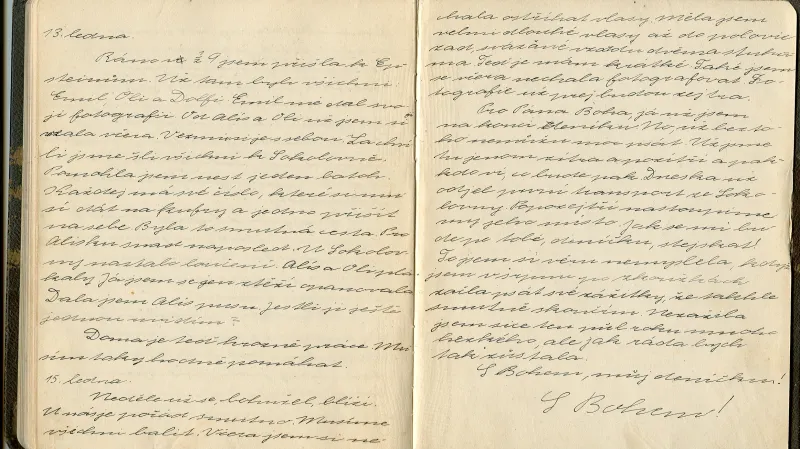 13. ledna.
Ráno v ½ 9 jsem přišla k Ep-
steinům. Už tam byli všichni
Emil, Oli a Dolfi. Emil mě dal svo-
ji fotografii. Od Alis a Oli už jsem ji
vzala včera. Vezmu je s sebou. Za chví-
li jsme šli všichni k Sokolovně.
Pomohla jsem nest jeden batoh.
Každej má své číslo, které si musí
si dát na kufry a jedno přišít
na sebe. Byla to smutná cesta. Pro
Alisku snad naposled. U Sokolov-
ny nastalo loučení. Alis a Oli pla-
kaly. Já jsem se jen ztěží opanovala.
Dala jsem Alis pusu. Jestli ji ještě
jednou uvidím?
Doma je teď hrozně práce. Mu-
sím taky hodně pomáhat.
15. ledna.
Neděle už se, bohužel, blíží.
U nás je pořád smutno. Musíme
všechno balit. Včera jsem si ne-
chala ostříhat vlasy. Měla jsem
velmi dlouhé vlasy až do polovic
zad, svázané vzadu dvěma stuhou-
ma. Teď je mám krátké. Také jsem
se včera nechala fotografovat. Fo-
tografie už prej budou zejtra.
Pro Pána Boha, já už jsem
na konci deníčku. No, už bez to-
ho nemůžu moc psát. Už jsme
tu jenom zítra a pozítří a pak
kdo ví, co bude pak. Dneska už
odjel první transport ze Soko-
lovny. Popozejtří nastoupíme
my jeho místo. Jak se mi bu-
de po tobě, deníčku, stejskat!
To jsem si věru nemyslela, když
jsem v srpnu po zkouškách
začla psát své zážitky, že takhle
smutně skončím. Nezažila
jsem sice ten půl roku mnoho
hezkého, ale jak ráda bych
tak zůstala.
S Bohem, můj deníčku!
S Bohem!